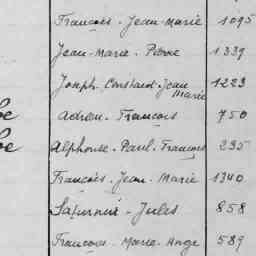 François. Jean-Marie 1095
Jean-Marie. Pierre 1339
Joseph. Constant-Jean Marie 1223
Adrien. François 750
Alphonse. Paul. François 235
François. Jean. Marie 1340
Saturnin. Jules 858
François. Marie. Ange 589